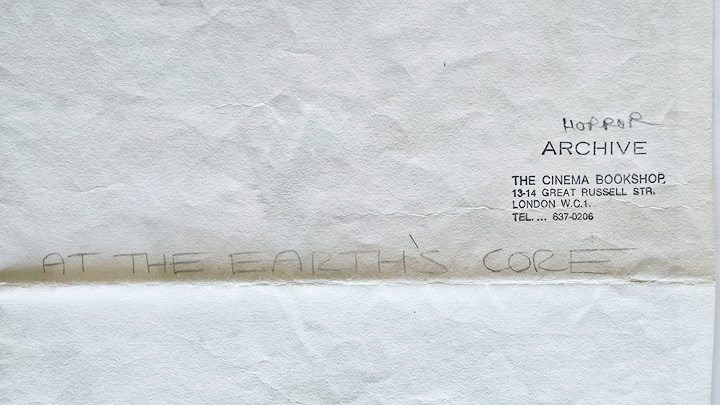 HORROR
ARCHIVE
THE CINEMA BOOKSHOP,
13-14 GREAT RUSSELL STR.
LONDON W.C.1.
TEL. ... 637-0206
AT THE EARTH'S CORE